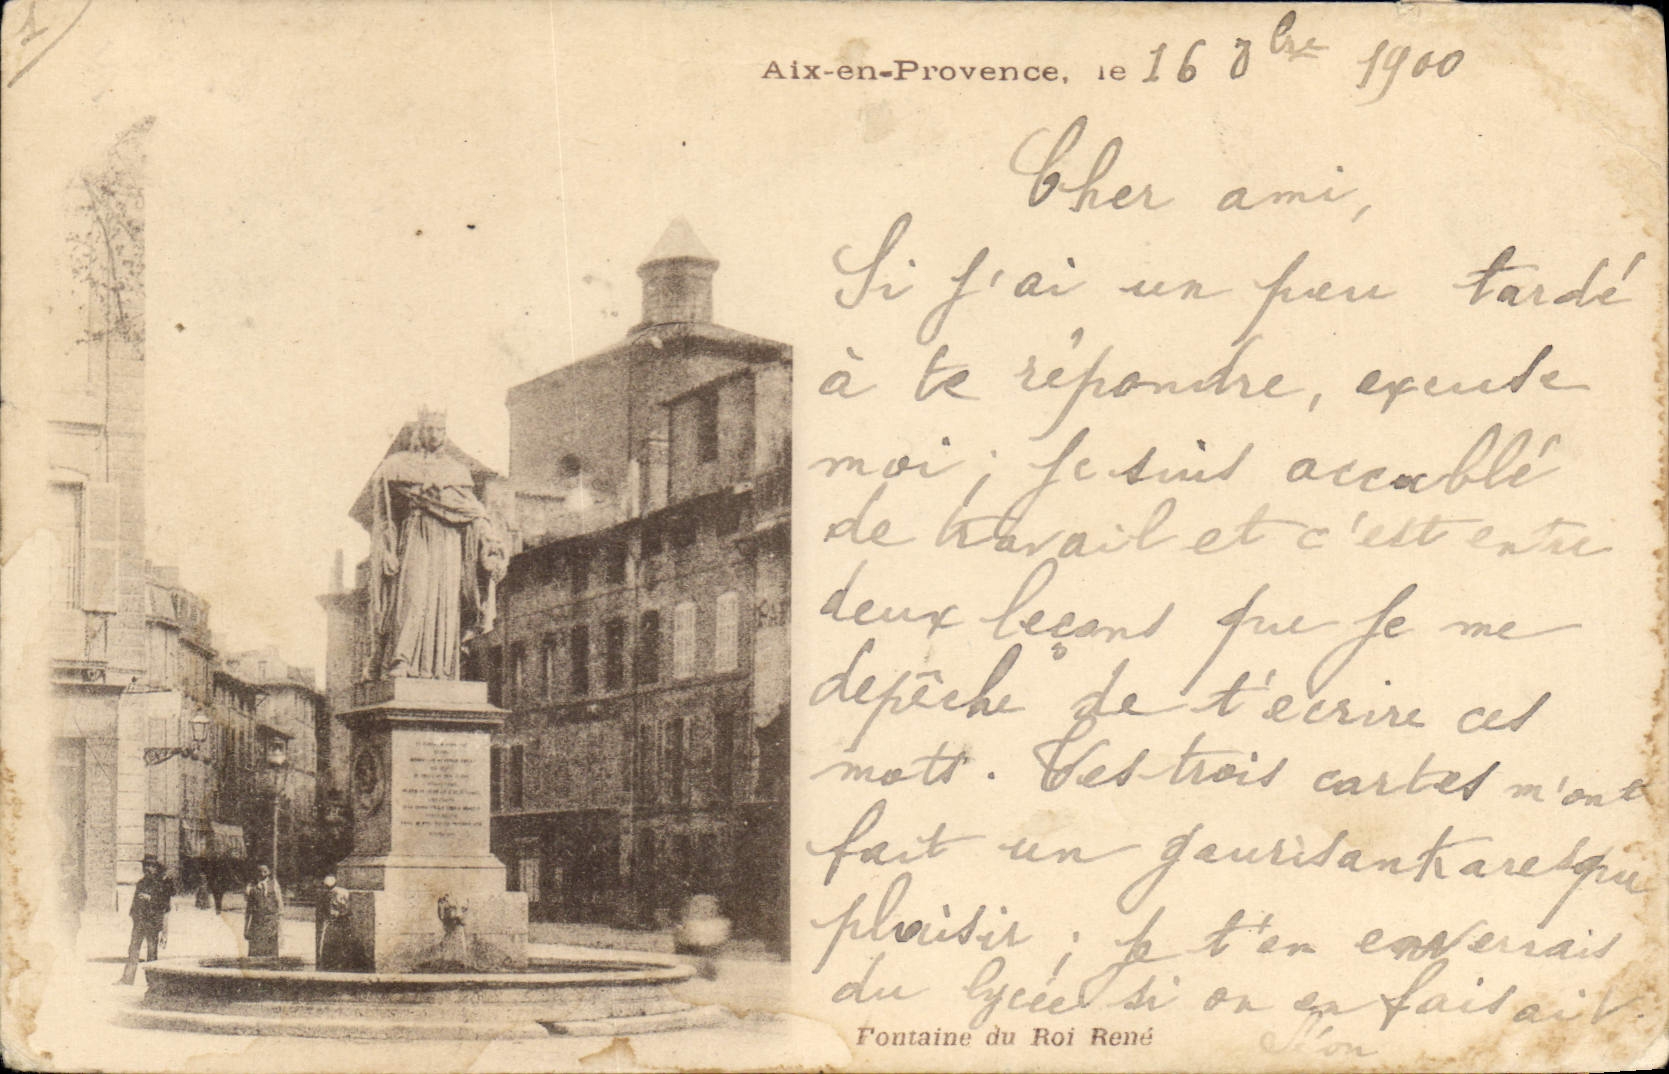 1
Aix-en-Provence, le 16 8bre 1900
Cher ami,
Si j'ai un peu tardé
à te répondre, excuse
moi ; je suis accablé
de travail et c'est entre
deux leçons que je me
depêche de t'ecrire ces
mots. Tes trois cartes m'ont
fait un gaurisankaresque
plaisir ; je t'en enverrais
du lycée si on en faisait.
Léon
Fontaine du Roi René